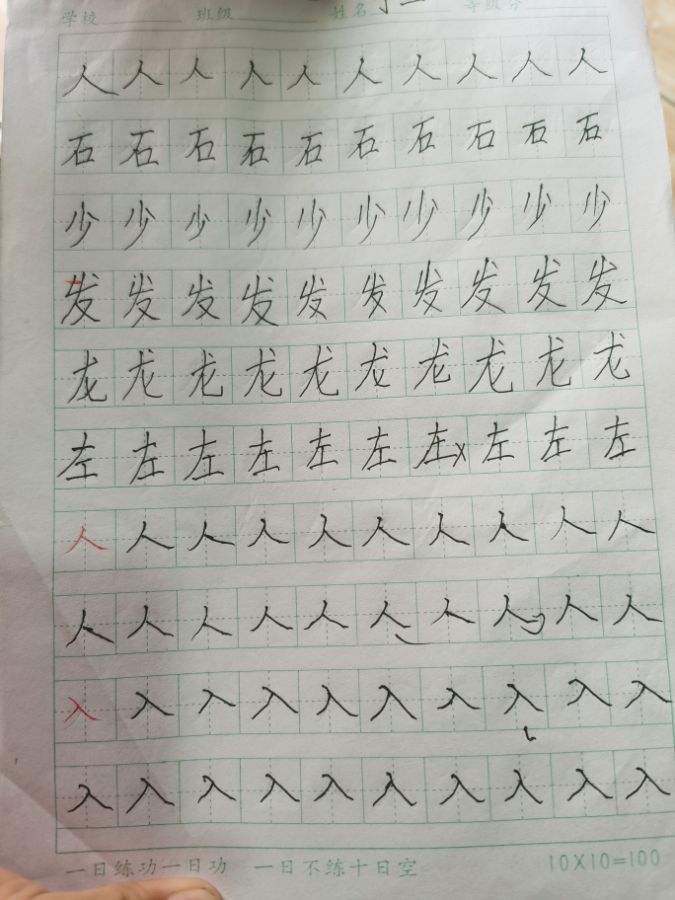 学校 班级 姓名 等级分
人人人人人人人人人人
石石石石石石石石石石
少少少少少少少少少少
发发发发发发发发发发
龙龙龙龙龙龙龙龙龙龙
左左左左左左左左左左
人人人人人人人人人人
人人人人人人人人人人
入入入入入入入入入入
入入入入入入入入入入
一日练功一日功 一日不练十日空 10X10=100